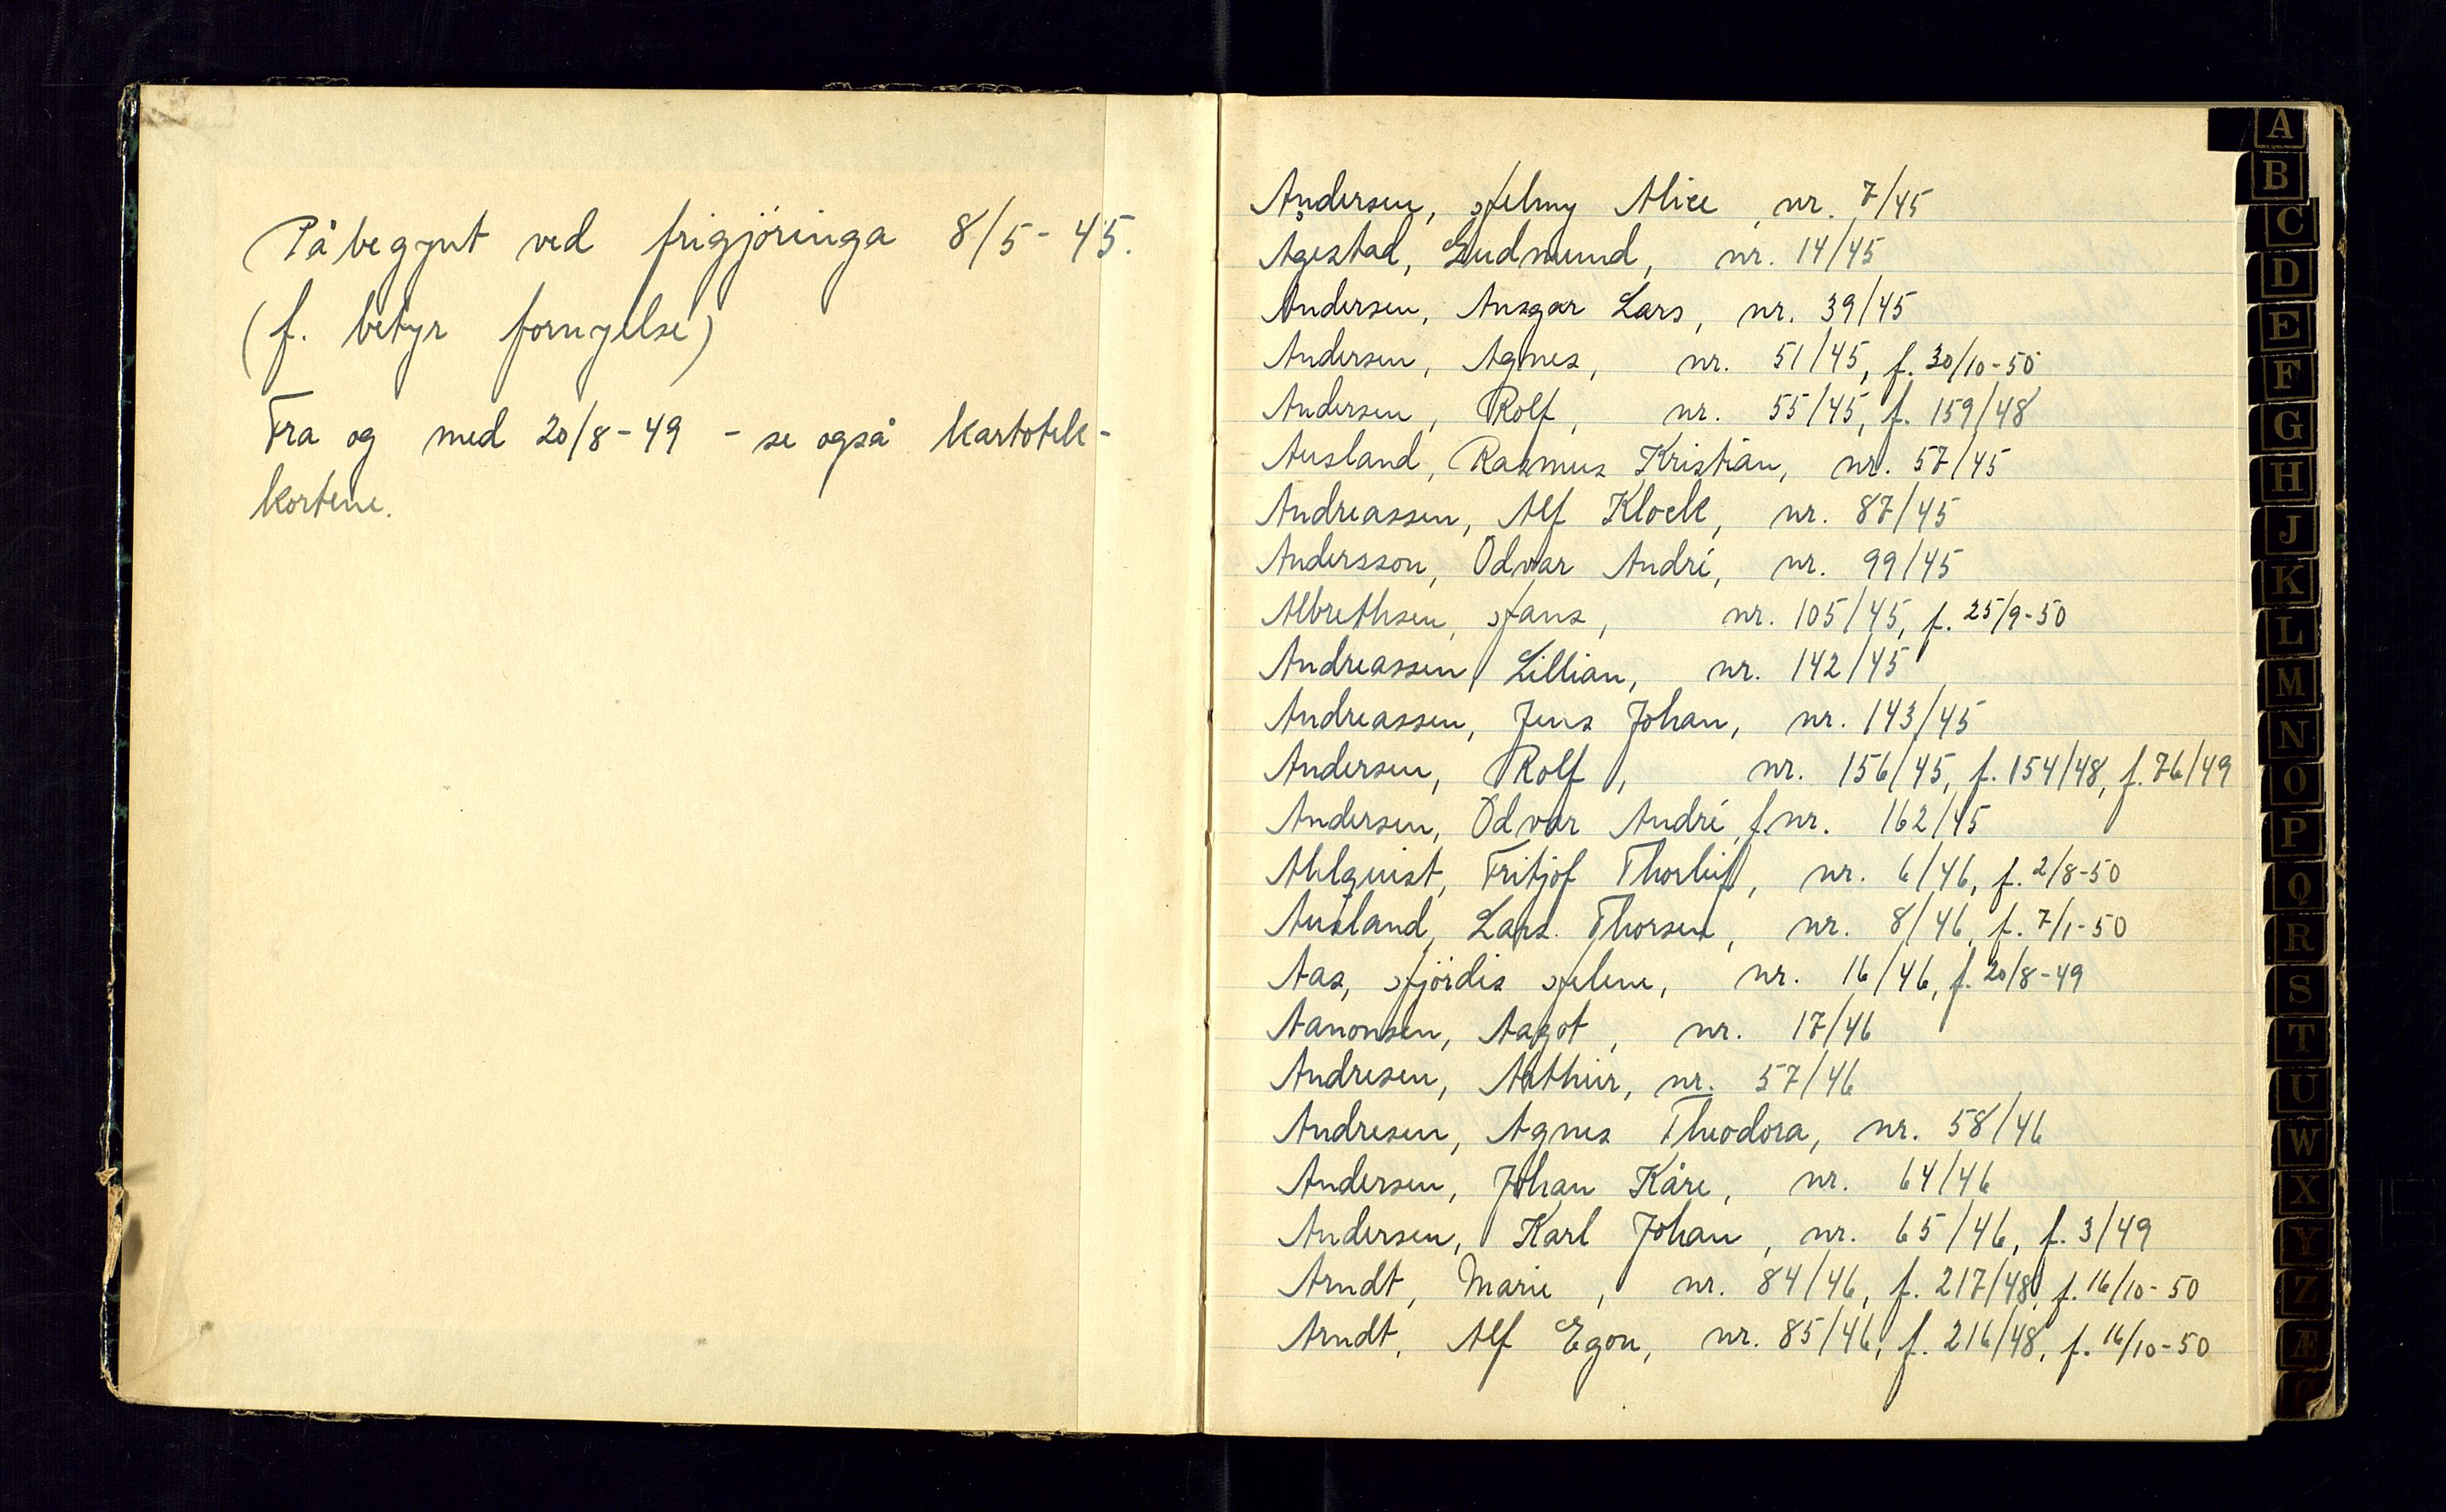 Påbegynt ved frigjöringa 8/5-45.
(f. betyr fornyelse)
Fra og med 20/8-49 - se også kartotek-
kortene.
Andersen, Helmy Alice, nr. 7/45
Ågestad, Gudmund, nr. 14/45
Andersen, Ansgar Lars, nr. 39/45
Andersen, Agnes, nr. 51/45, f. 30/10-50
Andersen, Rolf, nr. 55/45, f. 159/48
Ausland, Rasmus Kristian, nr. 57/45
Andreassen, Alf Klock, nr. 87/45
Andersson, Odvar André, nr. 99/45
Albrethsen, Hans, nr. 105/45, f. 25/9-50
Andreassen, Lillian, nr. 142/45
Andreassen, Jens Johan, nr. 143/45
Andersen, Rolf, nr. 156/45, f. 154/48, f. 76/49
Andersen, Odvar André, f. nr. 162/45
Ahlquist, Fritjof Thorleif, nr. 6/46, f. 2/8-50
Ausland, Lars Thorsen, nr. 8/46, f. 7/1-50
Aas, Hjördis Helene, nr. 16/46, f. 20/8-49
Aanonsen, Aagot, nr. 17/46
Andresen, Arthur, nr. 57/46
Andresen, Agnes Theodora, nr. 58/46
Andersen, Johan Kåre, nr. 64/46
Andersen, Karl Johan, nr. 65/46, f. 3/49
Arndt, Marie, nr. 84/46, f. 217/48, f. 16/10-50
Arndt, Alf Egon, nr. 85/46, f. 216/48, f. 16/10-50
A
B
C
D
E
F
G
H
J
K
L
M
N
O
P
Q
R
S
T
U
W
X
Y
Z
Æ